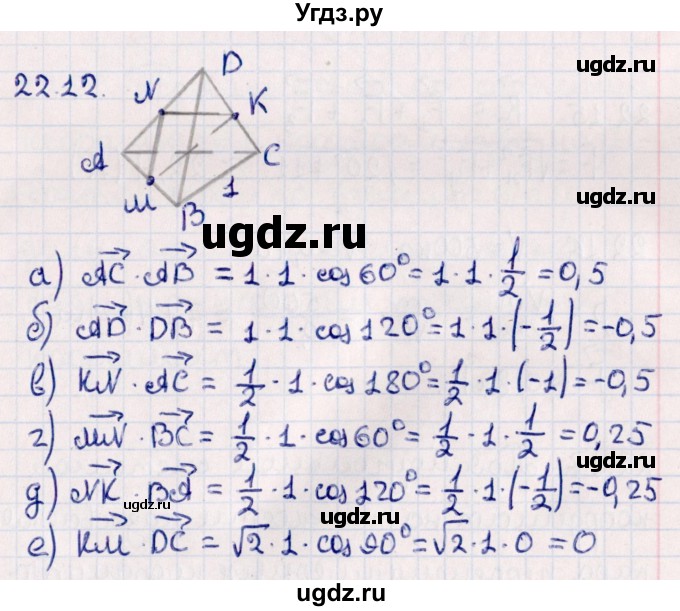 Угдз.ру
ugdz.ru
22.12.
D
N
K
A
C
M
1
B
ugdz.ru
а) AC · AB = 1 · 1 · cos 60° = 1 · 1 · 1/2 = 0,5
б) AD · DB = 1 · 1 · cos 120° = 1 · 1 · (-1/2) = -0,5
ugdz.ru
в) KN · AC = 1/2 · 1 · cos 180° = 1/2 · 1 · (-1) = -0,5
г) MN · BC = 1/2 · 1 · cos 60° = 1/2 · 1 · 1/2 = 0,25
ugdz.ru
д) NK · BA = 1/2 · 1 · cos 120° = 1/2 · 1 · (-1/2) = -0,25
ugdz.ru
ugdz.ru
е) KM · DC = √2 · 1 · cos 90° = √2 · 1 · 0 = 0
ugdz.ru